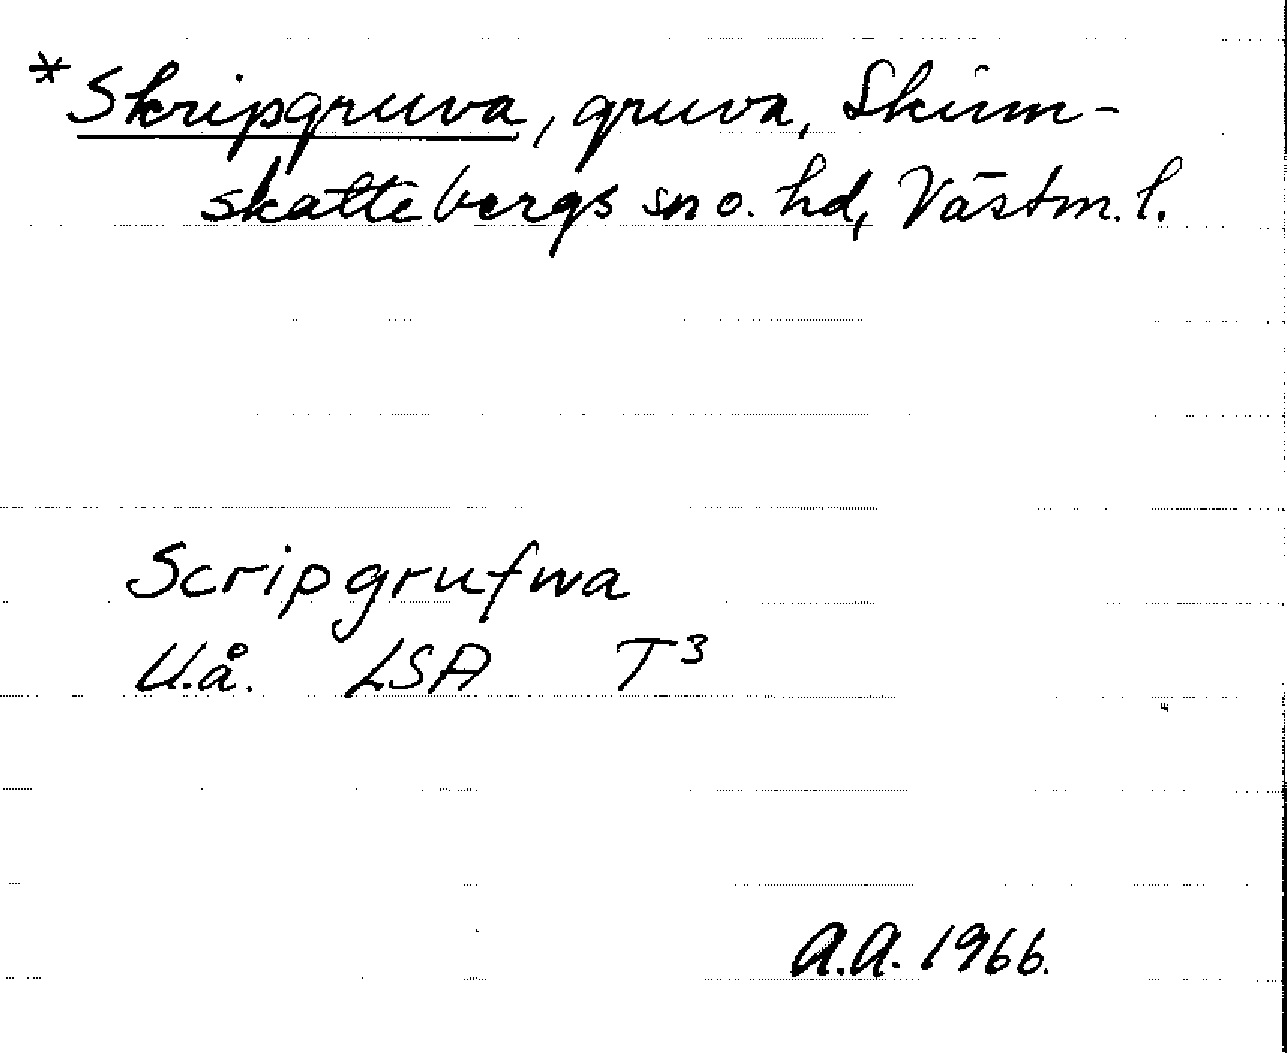 *Skripgruva, gruva, Skinn-
skattebergs sn o. hd, Västm. l.
Scripgrufwa
U.å. LSA T³
A.A. 1966.